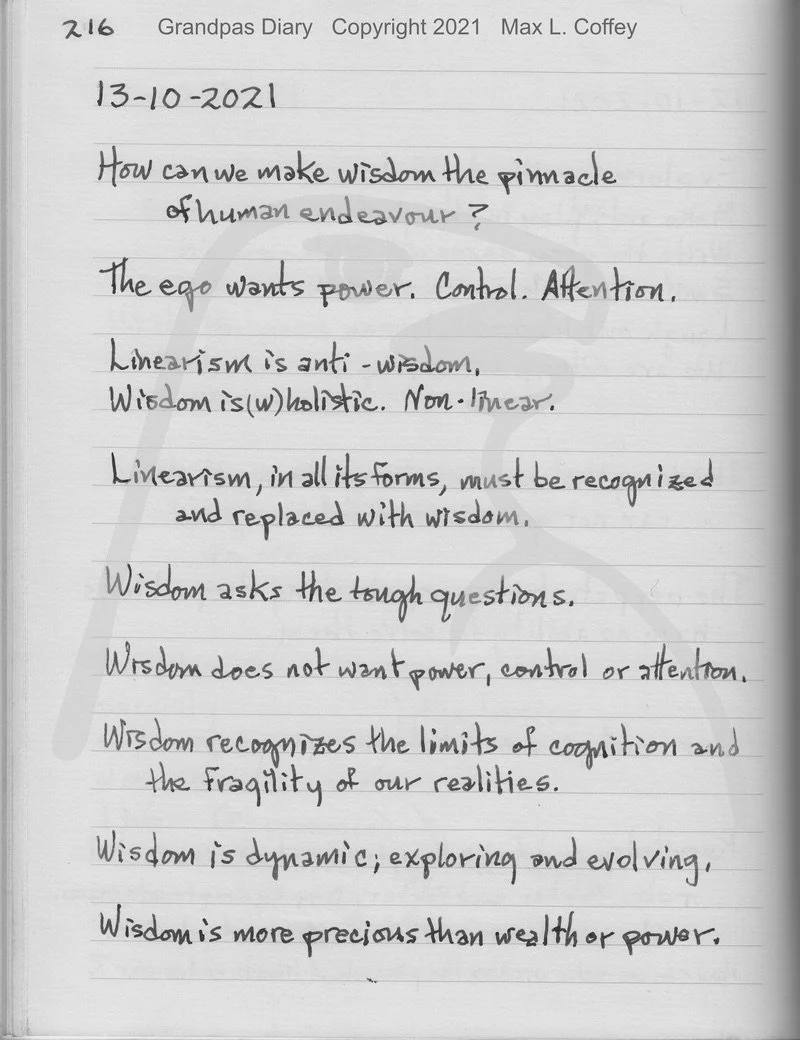 216 Grandpas Diary Copyright 2021 Max L. Coffey
13-10-2021
How can we make wisdom the pinnacle
of human endeavour?
The ego wants power. Control. Attention.
Linearism is anti-wisdom.
Wisdom is (w)holistic. Non-linear.
Linearism, in all its forms, must be recognized
and replaced with wisdom.
Wisdom asks the tough questions.
Wisdom does not want power, control or attention.
Wisdom recognizes the limits of cognition and
the fragility of our realities.
Wisdom is dynamic; exploring and evolving.
Wisdom is more precious than wealth or power.